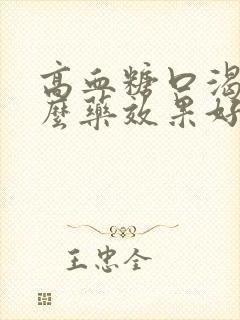 高血糖口渴
麼藥效果好
王忠全